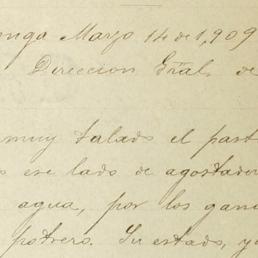 inga Mayo 14 de 1,909
Direccion Gral. de
muy talado el past
s ese lado de agostader
agua, por los gana
potrero. Su estado, y